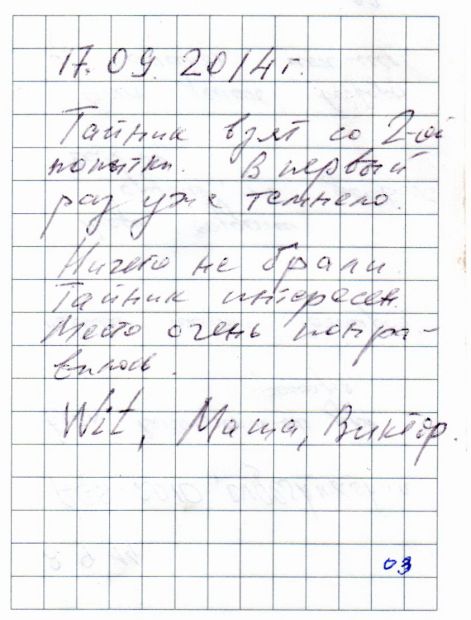 17.09.2014 г.
Тайник взят со 2-ой
попытки. В первый
раз уже темнело.
Ничего не брали.
Тайник интересен.
Место очень понра-
вилось.
Wit, Маша, Виктор.
03